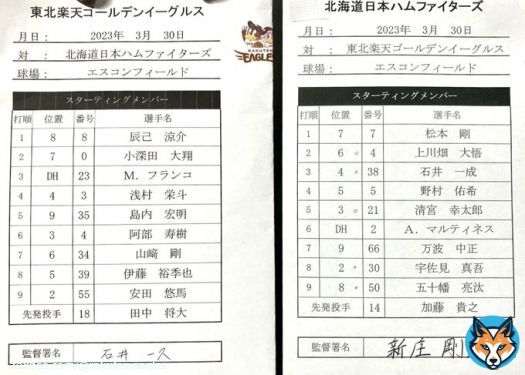 東北楽天ゴールデンイーグルス
月日： 2023年 3月 30日
対 ： 北海道日本ハムファイターズ
球場： エスコンフィールド
EAGLES
スターティングメンバー
打順 位置 番号 選手名
1 8 8 辰己 涼介
2 7 0 小深田 大翔
3 DH 23 M. フランコ
4 4 3 浅村 栄斗
5 9 35 島内 宏明
6 3 4 阿部 寿樹
7 6 34 山﨑 剛
8 5 39 伊藤 裕季也
9 2 55 安田 悠馬
先発投手 18 田中 将大
監督署名 石井 一久
北海道日本ハムファイターズ
月日： 2023年 3月 30日
対 ： 東北楽天ゴールデンイーグルス
球場： エスコンフィールド
スターティングメンバー
打順 位置 番号 選手名
1 7 7 松本 剛
2 6 4 上川畑 大悟
3 4 38 石井 一成
4 5 5 野村 佑希
5 3 21 清宮 幸太郎
6 DH 2 A. マルティネス
7 9 66 万波 中正
8 2 30 宇佐見 真吾
9 8 50 五十幡 亮汰
先発投手 14 加藤 貴之
監督署名 新庄 剛